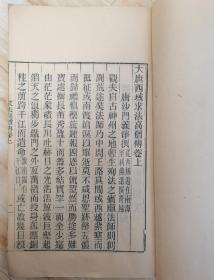 大唐西域求法高僧傳卷上
唐沙門義淨撰
觀夫自古神州之地輕生殉法之賓顯法師則創
闢荒途奘法師乃中開王路其間或西越紫塞而
孤征或南渡滄溟以單逝莫不咸思聖跡罄五體
而歸禮俱懷旋踵報四恩以流望然而勝途多難
寶處彌長苗秀盈十而蓋多結實罕一而全少實
由茫茫象磧長川吐赫日之光浩浩鯨波巨壑起
滔天之浪獨步鐵門之外亘萬嶺而投身孤漂銅
柱之前跨千江而遣命或亡飡幾日